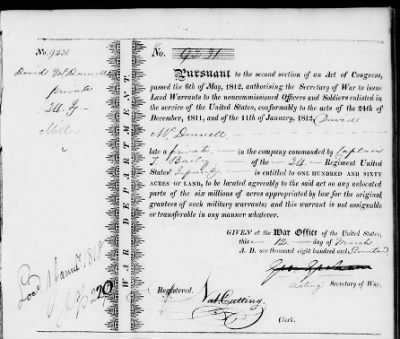 No. 9231
David McDannell
private
24 Ig
Miles
WAR DEPARTMENT.
No. 9231
Pursuant to the second section of an Act of Congress,
passed the 6th of May, 1812, authorising the Secretary of War to issue
Land Warrants to the noncommissioned Officers and Soldiers enlisted in
the service of the United States, conformably to the acts of the 24th of
December, 1811, and of the 11th of January, 1812, David
McDannell
late a private in the company commanded by Captain
T. Bailey of the 24 Regiment United
States' Infantry is entitled to ONE HUNDRED AND SIXTY
ACRES OF LAND, to be located agreeably to the said act on any unlocated
parts of the six millions of acres appropriated by law for the original
grantees of such military warrants; and this warrant is not assignable
or transferable in any manner whatever.
GIVEN at the War Office of the United States,
this 12 day of March
A. D. one thousand eight hundred and
acting Secretary of War.
Registered,
Nat Cutting
Clerk.
1818